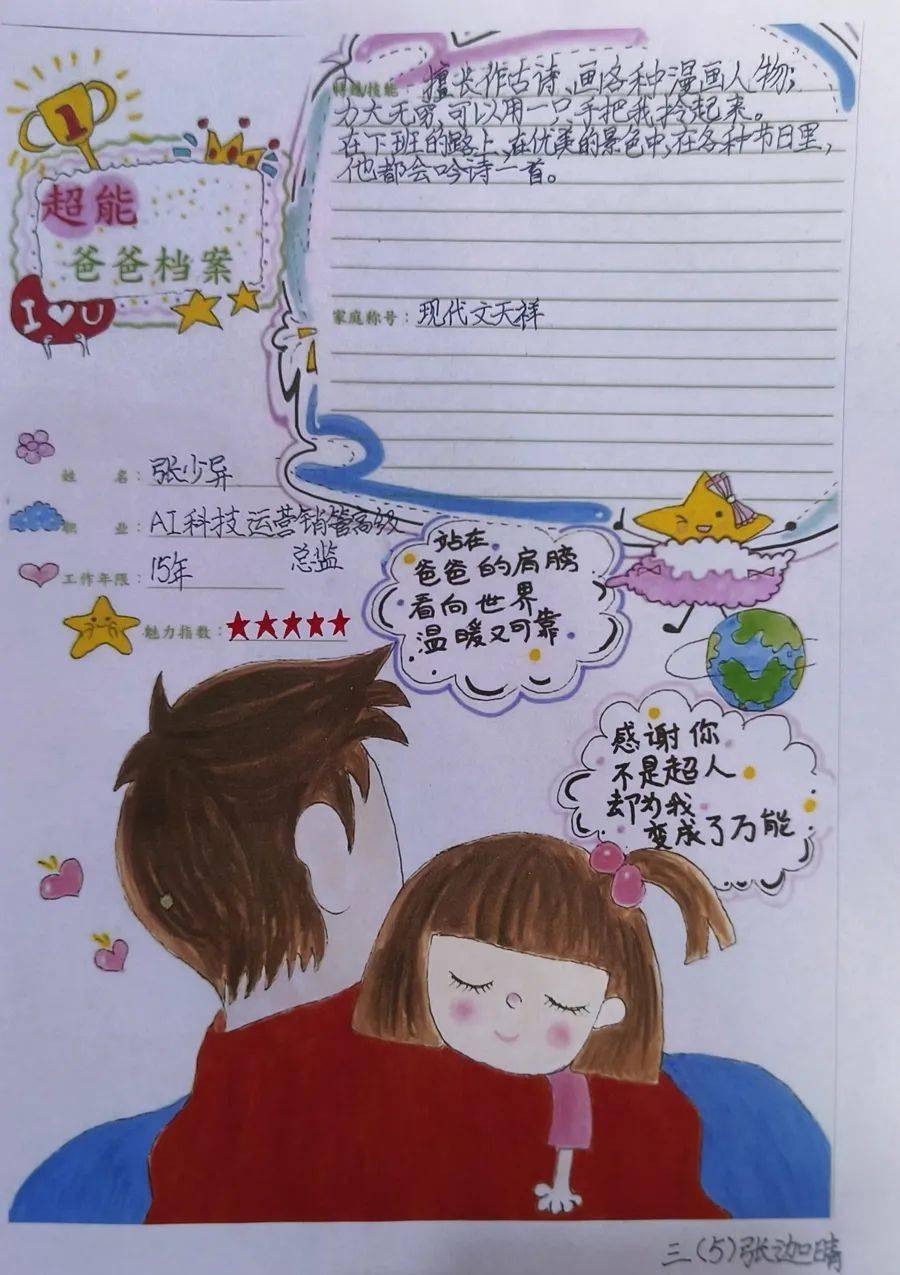 1
超能
爸爸档案
I♥U
特殊技能：擅长作古诗、画各种漫画人物；
力大无穷，可以用一只手把我拎起来。
在下班的路上，在优美的景色中，在各种节日里，
他都会吟诗一首。
家庭称号：现代文天祥
姓名：张少异
职业：AI科技运营销管高级
总监
工作年限：15年
魅力指数：★★★★★
站在
爸爸的肩膀
看向世界
温暖又可靠
感谢你
不是超人
却为我
变成了万能
三（5）张迦晴